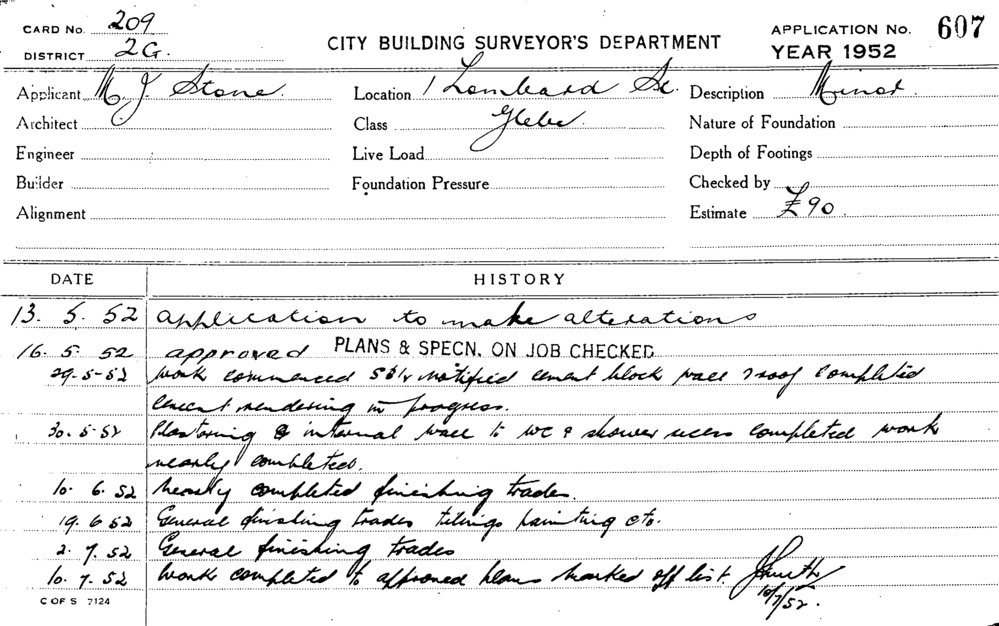 CARD No. 209
DISTRICT 2G.
CITY BUILDING SURVEYOR'S DEPARTMENT
APPLICATION No. 607
YEAR 1952
Applicant M J Stone.
Location 1 Lombard St.
Description Minor.
Architect
Class Glebe
Nature of Foundation
Engineer
Live Load
Depth of Footings
Builder
Foundation Pressure
Checked by
Alignment
Estimate £90.
DATE HISTORY
13. 5. 52 application to make alterations
16. 5. 52 approved PLANS & SPECN. ON JOB CHECKED
29-5-52 Work commenced notified cement block wall & roof completed
cement rendering in progress.
30. 5-52 Plastering & internal wall to WC & shower recess completed work
nearly completed.
10. 6. 52 nearly completed finishing trades.
19. 6 52 General finishing trades tilings painting etc.
2. 7. 52 General finishing trades
10. 7. 52 Work completed to approved plans marked off list.
10/7/52.
C OF S 7124